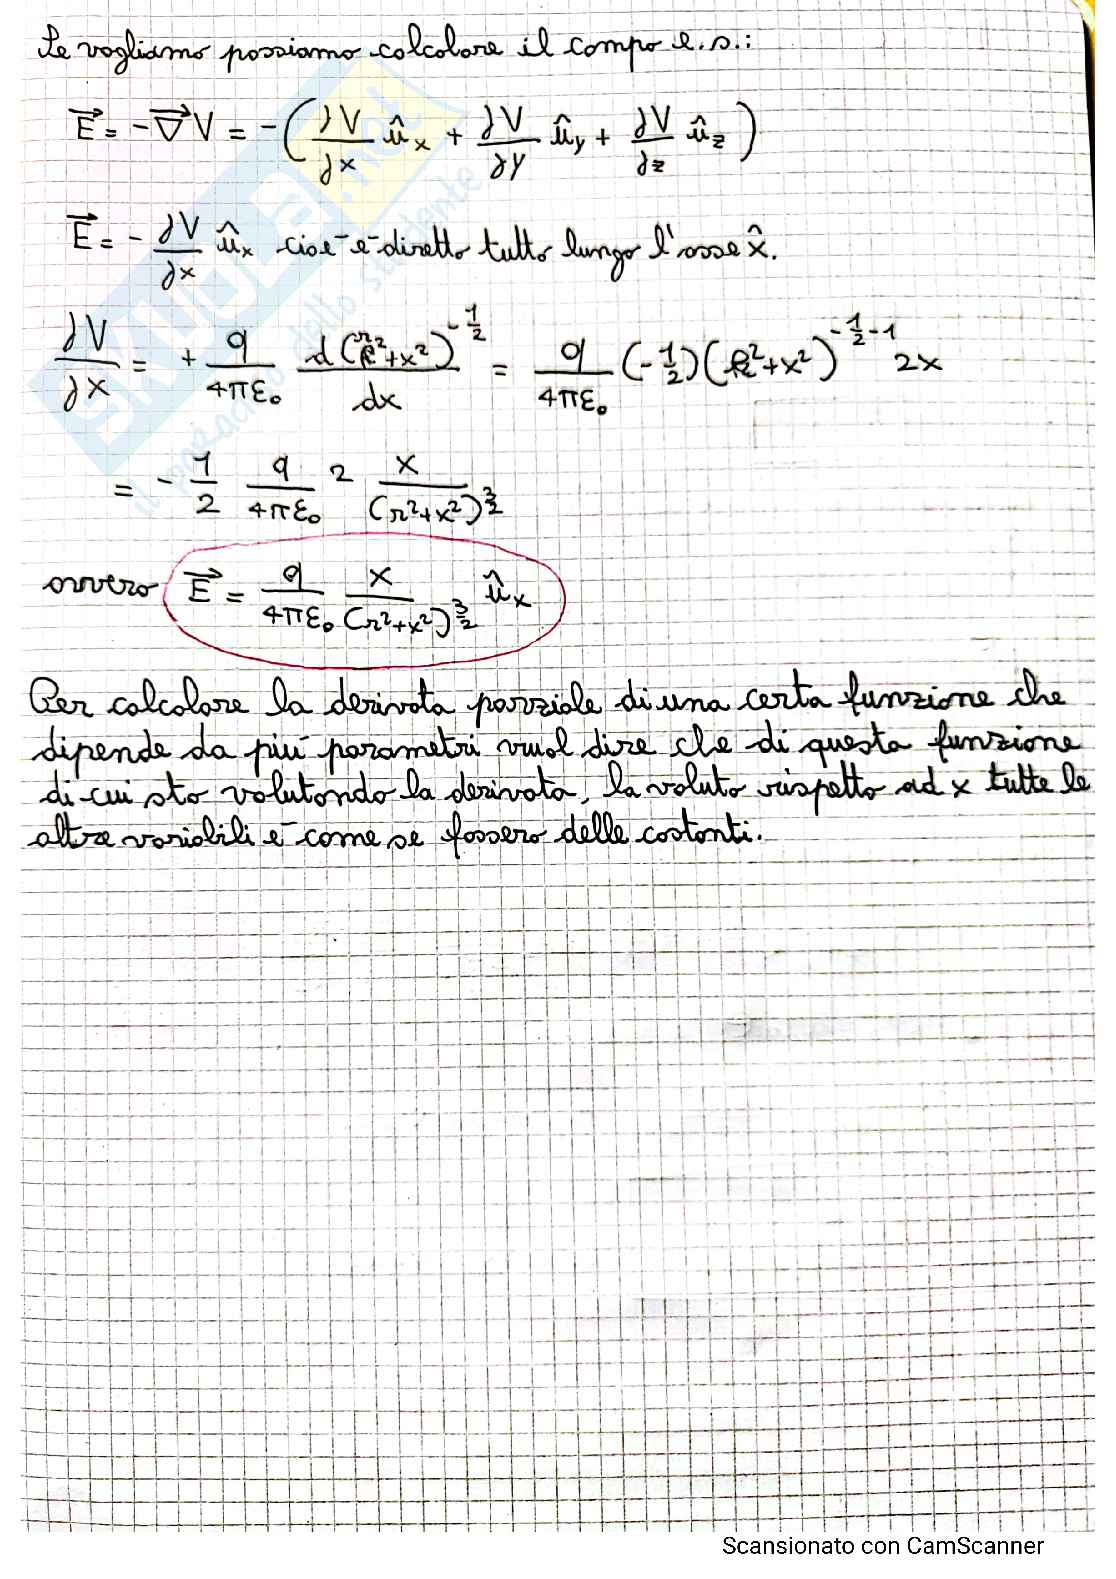 Se vogliamo possiamo calcolare il campo e.s.:
E⃗ = -∇⃗V = -(∂V/∂x û_x + ∂V/∂y û_y + ∂V/∂z û_z)
E⃗ = - ∂V/∂x û_x cioè è diretto tutto lungo l'asse x̂.
∂V/∂x = + q/4πε₀ d(r²+x²)^(-1/2)/dx = q/4πε₀ (-1/2)(r²+x²)^(-1/2-1) 2x
= - 1/2 q/4πε₀ 2 x/(r²+x²)^(3/2)
ovvero E⃗ = q/4πε₀ x/(r²+x²)^(3/2) û_x
Per calcolare la derivata parziale di una certa funzione che
dipende da più parametri vuol dire che di questa funzione
di cui sto valutando la derivata, la valuto rispetto ad x tutte le
altre variabili è come se fossero delle costanti.
SKUOLA.net
il paradiso dello studente
Scansionato con CamScanner